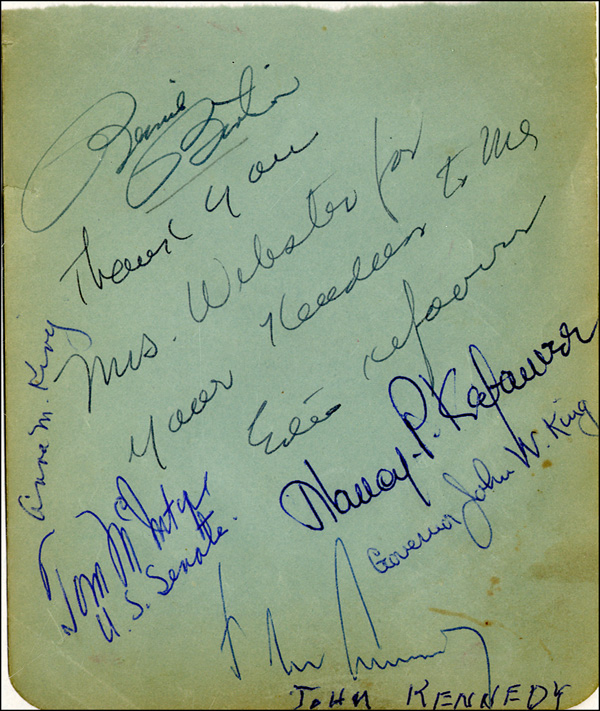 Bernie
Boutin
Thank you
Mrs. Webster for
your kindness to me
Estes Kefauver
Anna M. King
Nancy P. Kefauver
Governor John W. King
Tom McIntyre
U.S. Senate.
John Kennedy
JOHN KENNEDY